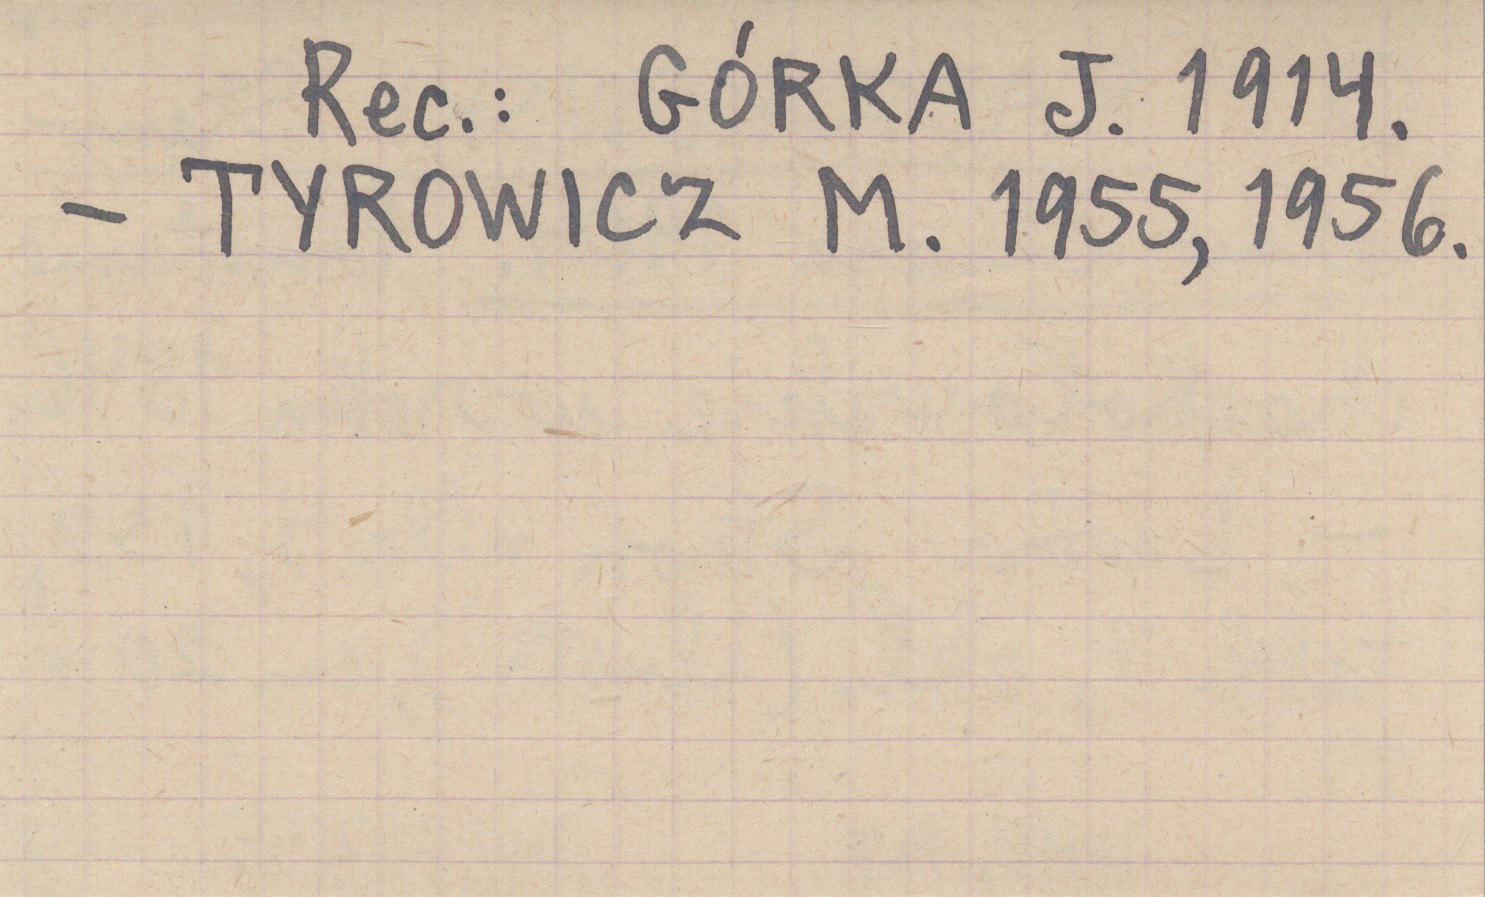 Rec.: GÓRKA J. 1914.
- TYROWICZ M. 1955, 1956.